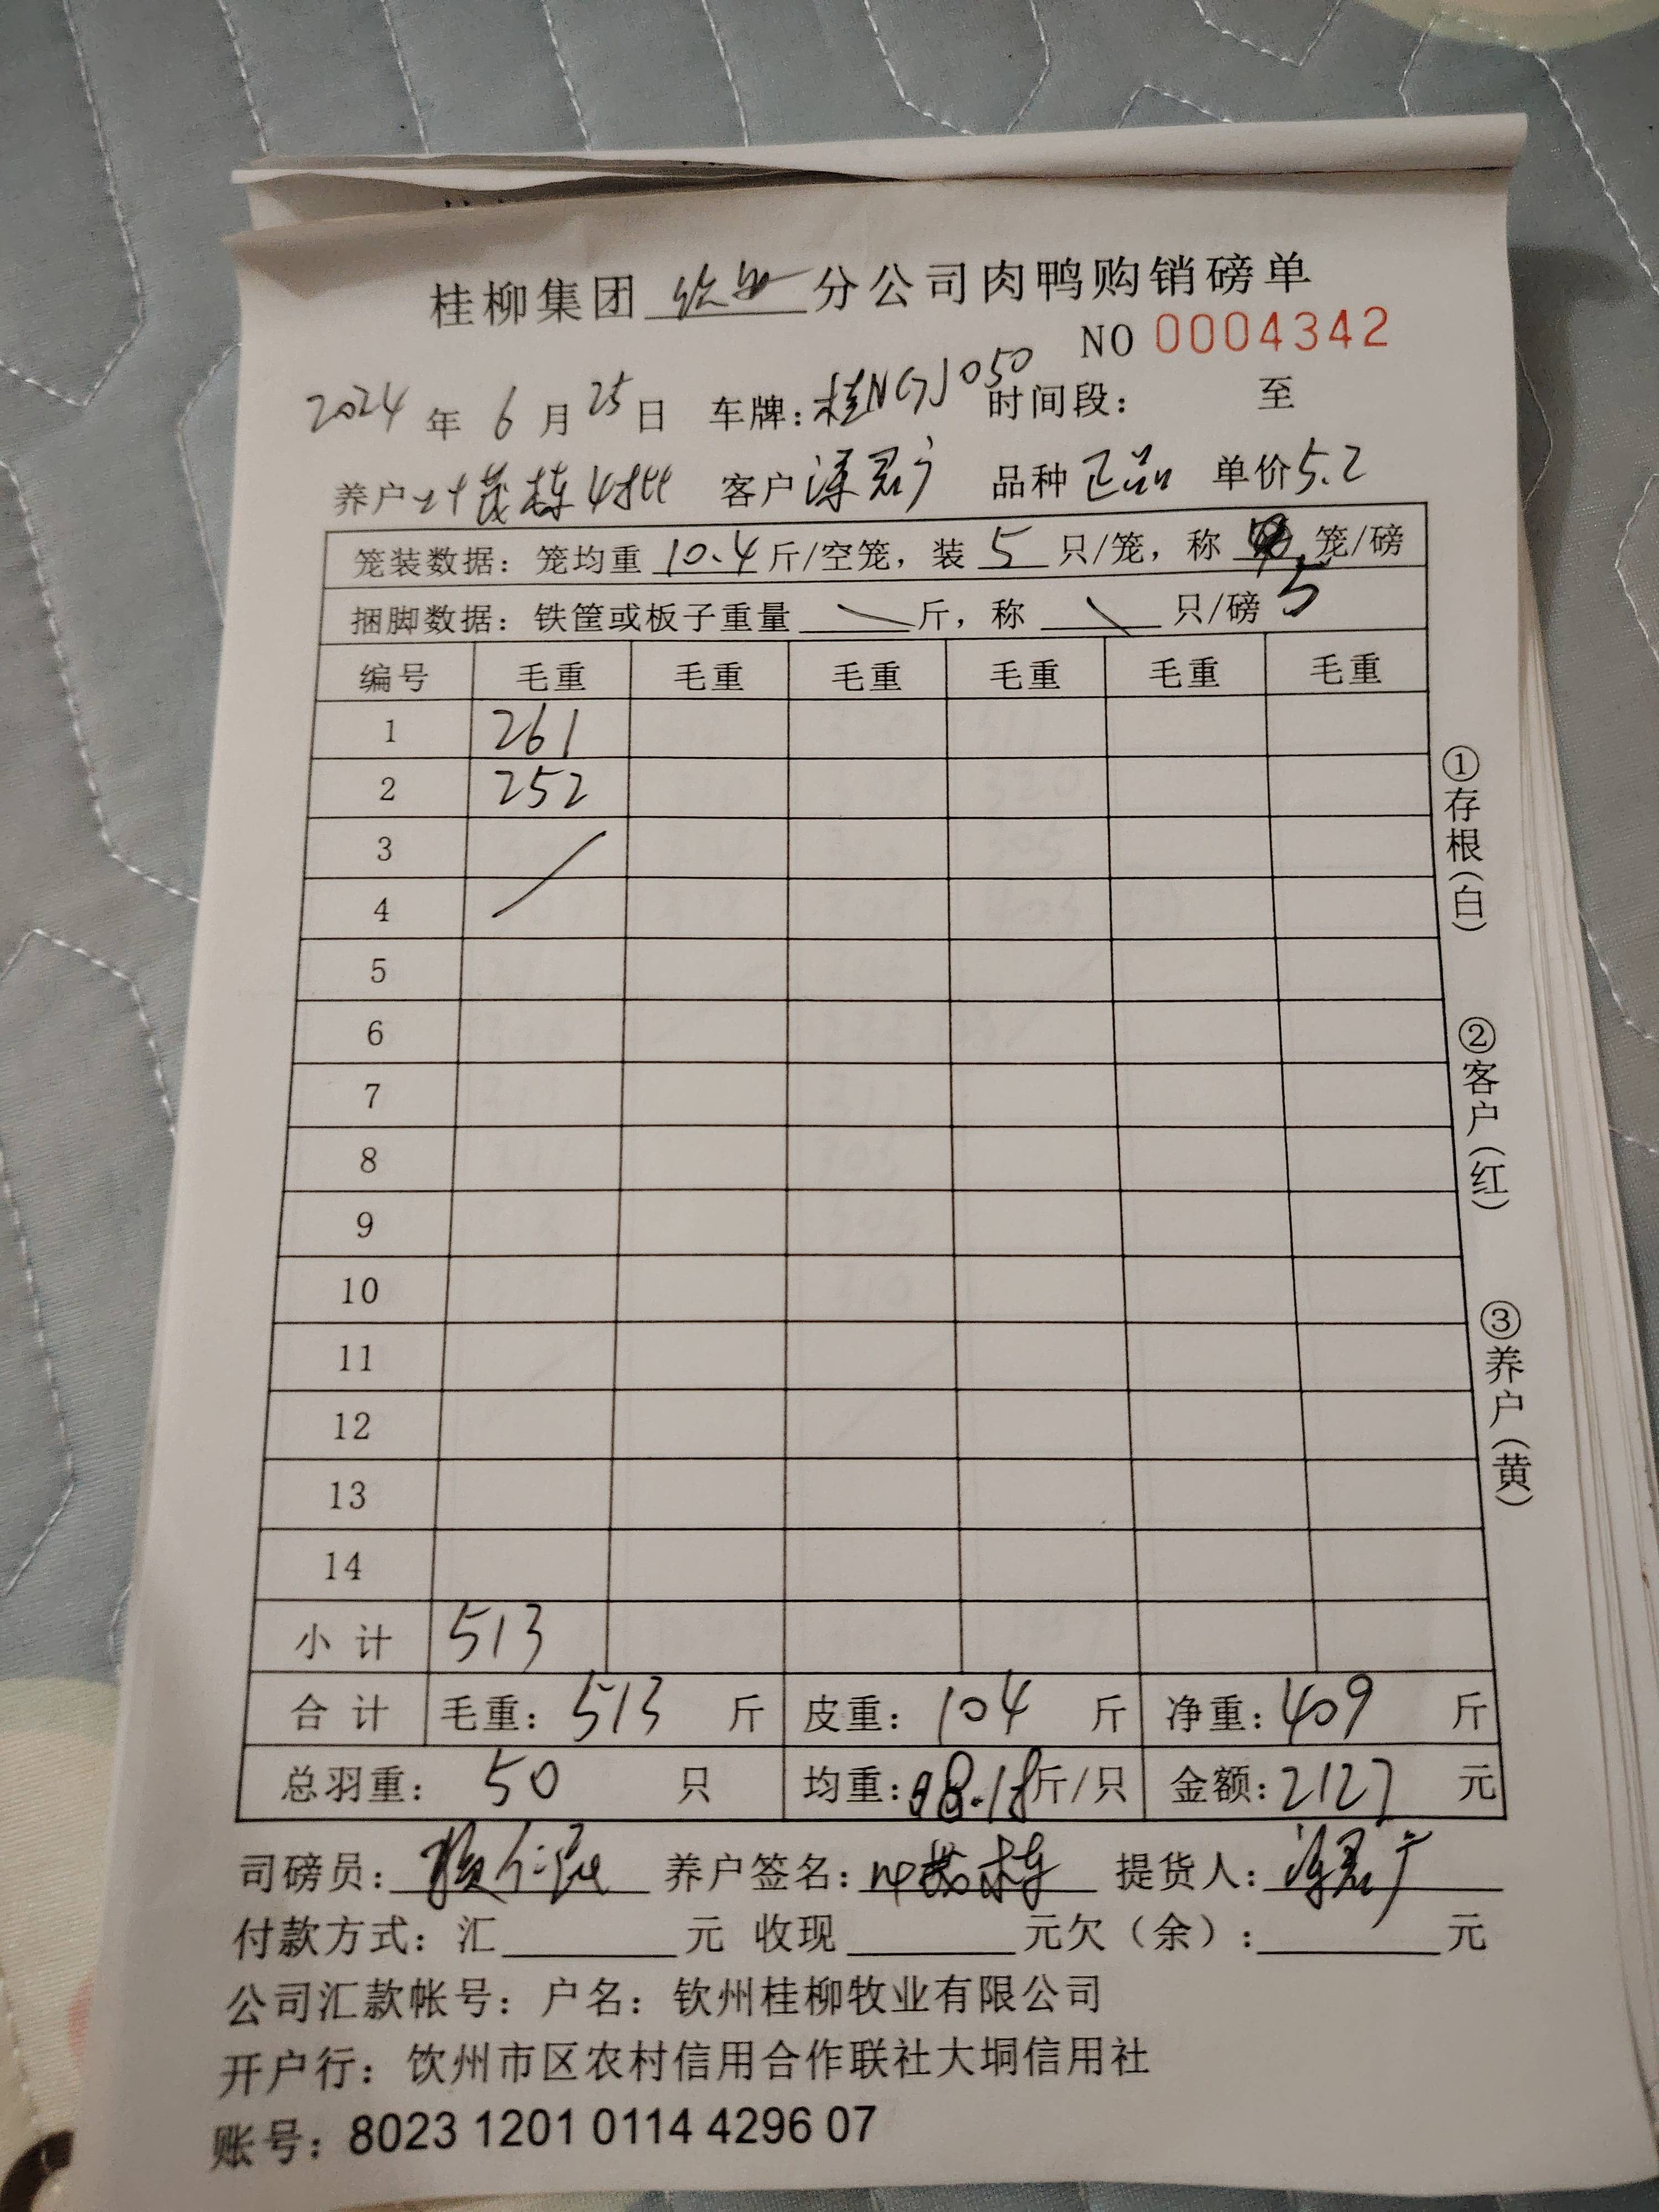 桂柳集团 钦州 分公司肉鸭购销磅单
NO 0004342
2024 年 6 月 25 日 车牌:桂NGJ050 时间段: 至
养户 叶茂栋4批 客户 君广 品种 正品 单价5.2
笼装数据:笼均重 10.4 斤/空笼,装 5 只/笼,称 5 笼/磅
捆脚数据:铁筐或板子重量 斤,称 只/磅
编号 毛重 毛重 毛重 毛重 毛重 毛重
1 261
2 252
3
4
5
6
7
8
9
10
11
12
13
14
小计 513
合计 毛重:513 斤 皮重:104 斤 净重:409 斤
总羽重:50 只 均重:8.18斤/只 金额:2127 元
司磅员: 养户签名:叶茂栋 提货人: 君广
付款方式:汇 元 收现 元欠(余):元
公司汇款帐号:户名:钦州桂柳牧业有限公司
开户行:饮州市区农村信用合作联社大垌信用社
账号:8023 1201 0114 4296 07
①存根(白)
②客户(红)
③养户(黄)